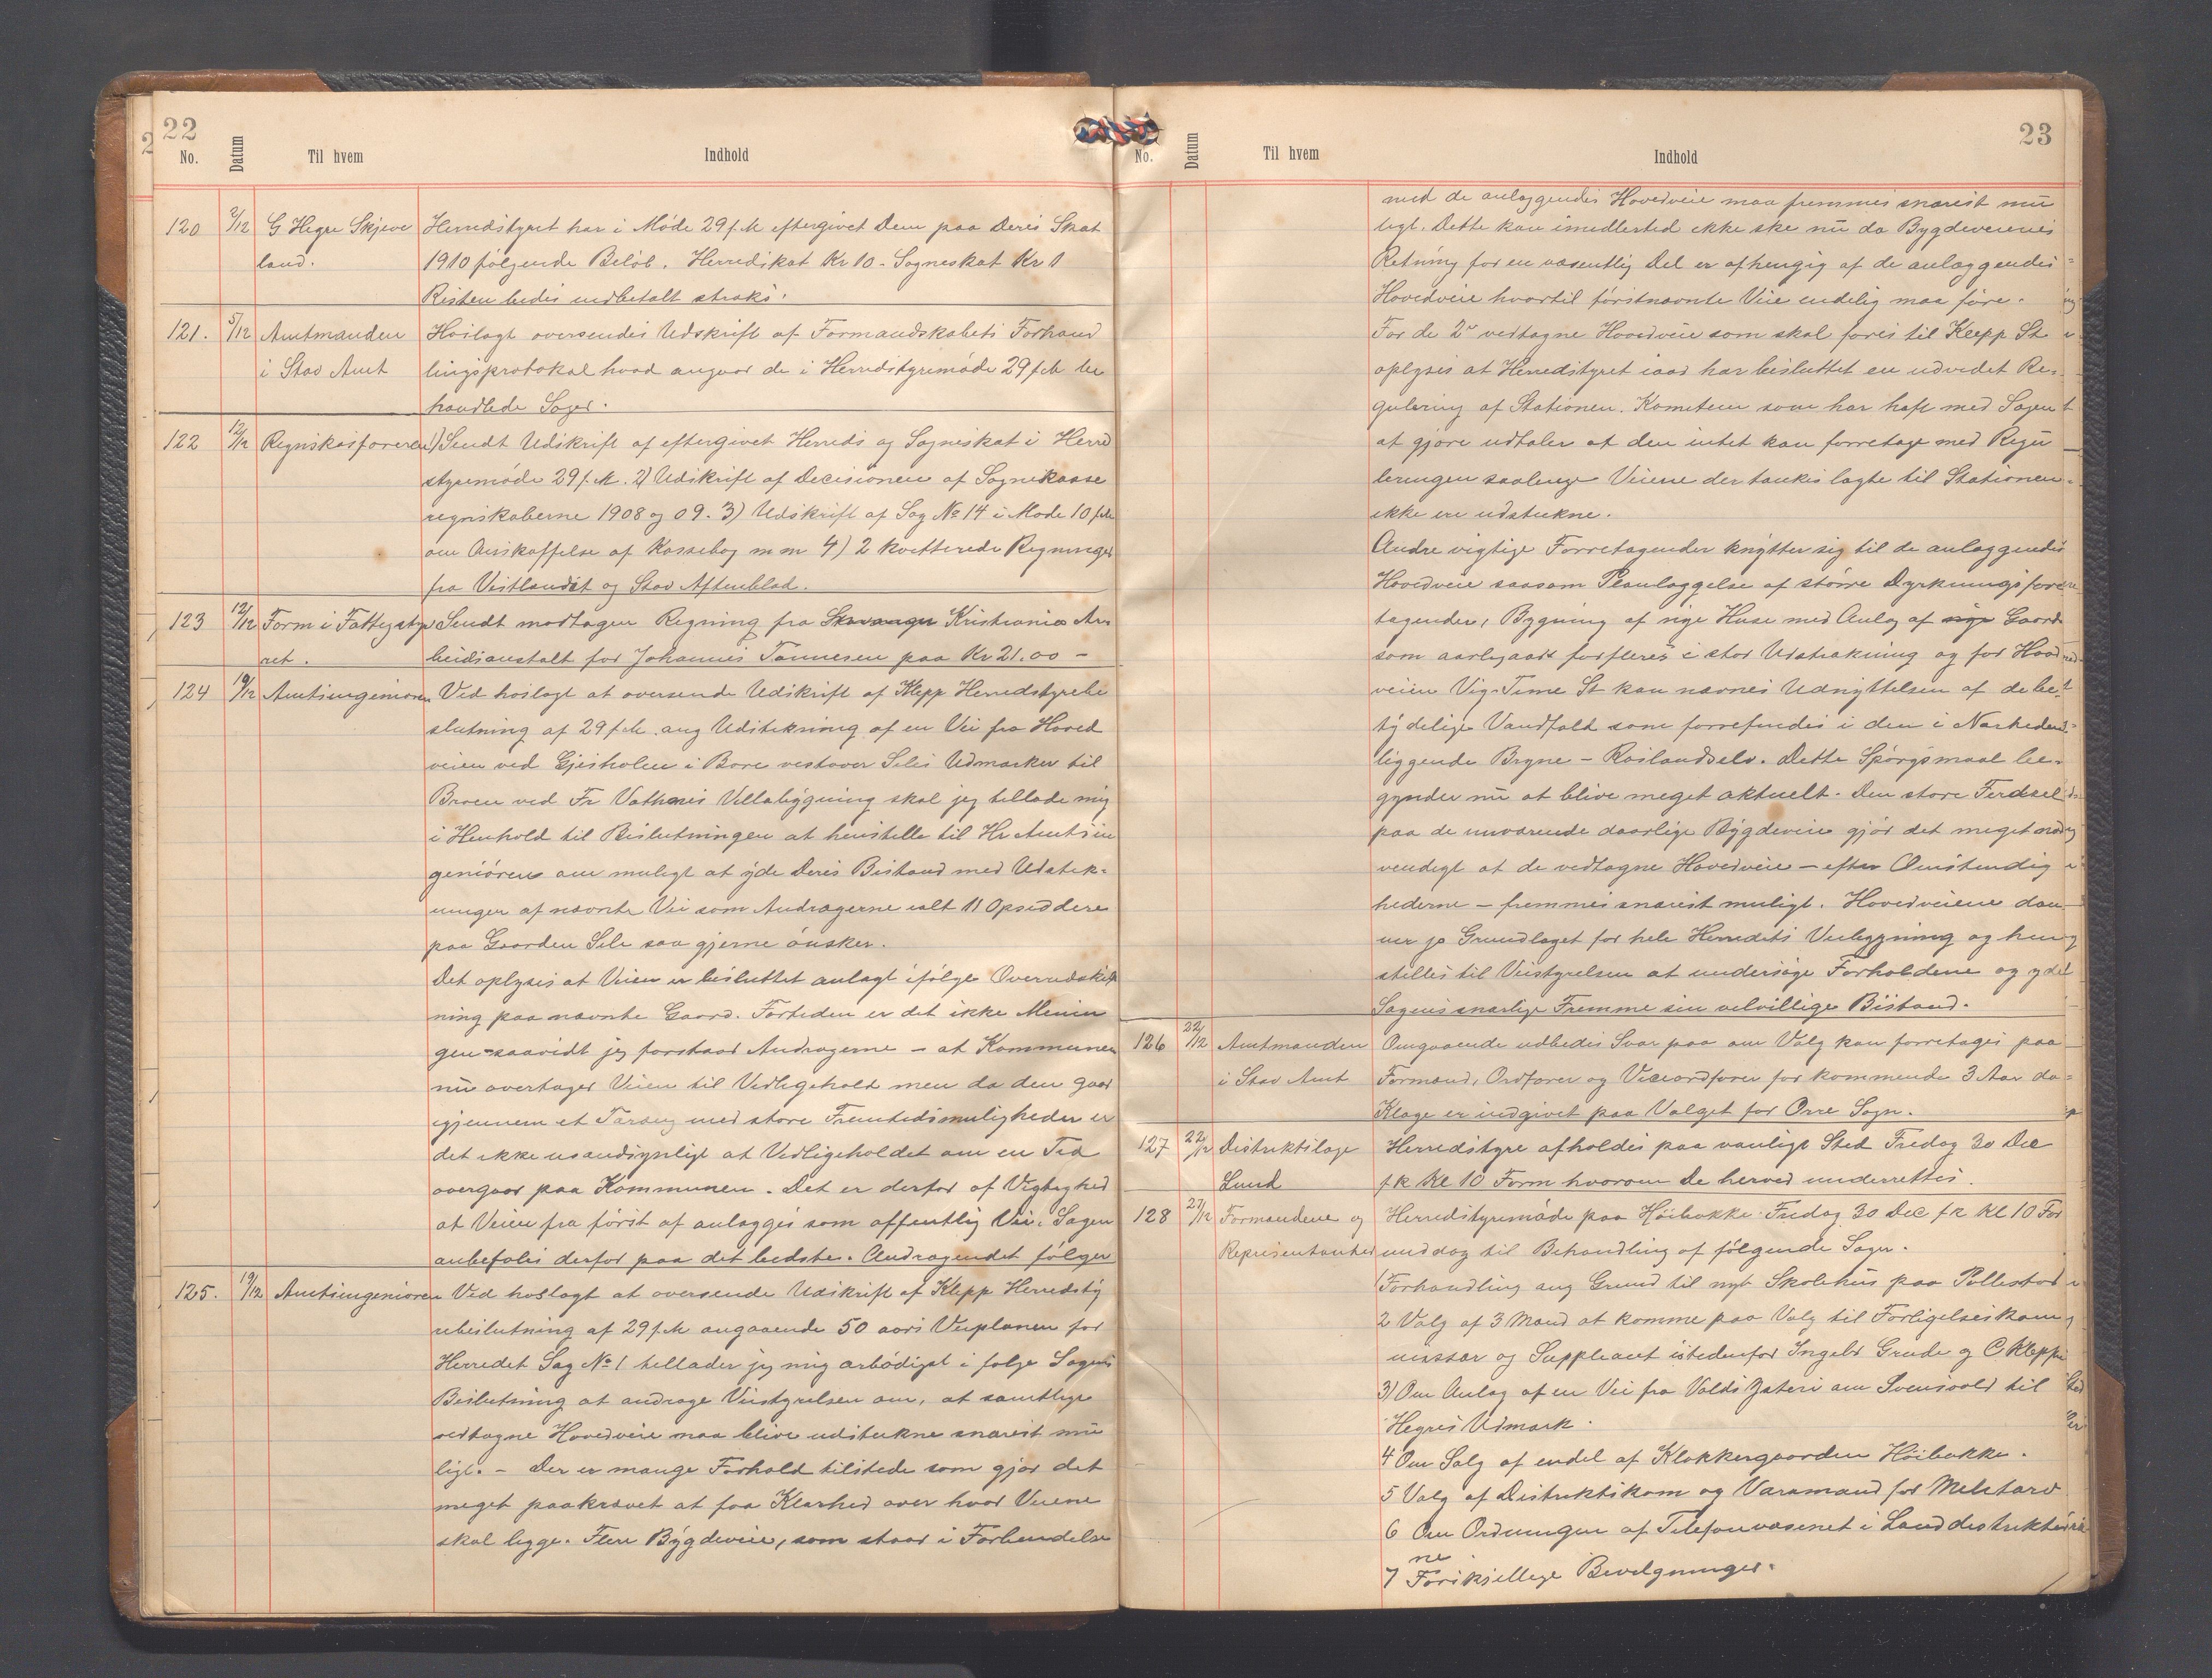 22
No. Datum Til hvem Indhold
120 2/12 G Hegre Skjæve Herredstyret har i Møde 29 f.M eftergivet Dem paa Deres Skat
land. 1910 følgende Beløb. Herredskat Kr 10 - Sogneskat Kr 1
Resten bedes indbetalt straks.
121. 5/12 Amtmanden Hoslagt oversendes Udskrift af Formandskabets Forhand
i Stav Amt lingsprotokol hvad angaar de i Herredstyremøde 29 f.M be
handlede Sager.
122 12/12 Regnskasføreren 1) Sendt Udskrift af eftergivet Herreds og Sogneskat i Herred
styremøde 29 f.M. 2) Udskrift af Decisionen af Sognekasse
regnskaberne 1908 og 09. 3) Udskrift af Sag No 14 i Møde 10 f.M
om Anskaffelse af Kassebog m m 4) 2 kvitterede Regninger
fra Vestlandet og Stav Aftenblad.
123 12/12 Form i Fattigsty Sendt modtagen Regning fra Stavanger Kristiania Ar
ret. beidsanstalt for Johannes Tønnesen paa Kr 21.00 -
124 19/12 Amtsingeniøren Ved hoslagt at oversende Udskrift af Klepp Herredstyrebe
slutning af 29 f.M. ang Udstikning af en Vei fra Hoved
veien ved Gjesholen i Bore vestover Seles Udmarker til
Broen ved Fr Vathnes Villabygning skal jeg tillade mig
i Henhold til Beslutningen at henstille til Hr Amtsin
geniøren om muligt at yde Deres Bistand med Udstik-
ningen af nævnte Vei som Andragerne ialt 11 Opsiddere
paa Gaarden Sele saa gjerne ønsker.
Det oplyses at Veien er besluttet anlagt ifølge Overudskift
ning paa nævnte Gaard. Fortiden er det ikke Menin
gen - saavidt jeg forstaar Andragerne - at Kommunen
nu overtager Veien til Vedligehold men da den gaar
igjennem et Tørveng med store Fremtidsmuligheder er
det ikke usandsynligt at Vedligeholdet om en Tid
overgaar paa Kommunen. Det er derfor af Vigtighed
at Veien fra først af anlægges som offentlig Vei. Sagen
anbefales derfor paa det bedste. Andragendet følger
125. 19/12 Amtsingeniøren Ved hoslagt at oversende Udskrift af Klepp Herredsty
rebeslutning af 29 f.M angaaende 50 aars Veiplanen for
Herredet Sag No 1 tillader jeg mig ærbødigst i følge Sagens
Beslutning at andrage Veistyrelsen om, at samtlige
vedtagne Hovedveie maa blive udstukne snarest mu
ligt. - Der er mange Forhold tilstede som gjør det
meget paakrævet at faa Klarhed over hvor Veiene
skal ligge. Flere Bygdeveie, som staar i Forbindelse
23
No. Datum Til hvem Indhold
med de anlæggendes Hovedveie maa fremmes snarest mu
ligt. Dette kan imedlertid ikke ske nu da Bygdeveienes
Retning for en væsentlig Del er afhengig af de anlæggendes
Hovedveie hvortil førstnævnte Veie endelig maa føre.
For de 2de vedtagne Hovedveie som skal føres til Klepp St
oplyses at Herredstyret iaar har besluttet en udvidet Re-
gulering af Stationen. Komiteen som har haft med Sagen
at gjøre udtaler at den intet kan forretage med Regu
leringen saalenge Veiene der tænkes lagte til Stationen
ikke er udstukne.
Andre vigtige Forretagender knytter sig til de anlæggendes
Hovedveie saasom Planlæggelse af større Dyrkningsfore
tagender, Bygning af nye Huse med Anlæg af nye Gaarde
som aarlegaart forfleres i stor Udstrækning og for Hoved
veien Vig-Time St kan nævnes Udnyttelsen af de be-
tydelige Vandfald som forrefindes i den i Nærheden
liggende Bryne - Roslandselv. Dette Spørgsmaal be-
gynder nu at blive meget aktuelt. Den store Ferdsel
paa de nuværende daarlige Bygdeveie gjør det meget nød
vendigt at de vedtagne Hovedveie - efter Omstendig
hederne - fremmes snarest muligt. Hovedveiene dan
ner jo Grundlaget for hele Herredets Veibygning og hen
stilles til Veistyrelsen at undersøge Forholdene og yde
Sagens snarlige Fremme sin velvillige Bistand.
126 22/12 Amtmanden Omgaaende udbedes Svar paa om Valg kan forretages paa
i Stav Amt Formand, Ordfører og Viceordfører for kommende 3 Aar da
Klage er indgivet paa Valget for Orre Sogn.
127 22/12 Distriktslæge Herredstyre afholdes paa vanligt Sted Fredag 30 Dec
Lund f k Kl 10 Form hvorom De herved underrettes.
128 27/12 Formændene og Herredstyremøde paa Høibakke Fredag 30 Dec f k Kl 10 For
Representanter middag til Behandling af følgende Sager.
1 Forhandling ang Grund til nyt Skolehus paa Pollestad
2 Valg af 3 Mænd at komme paa Valg til Forligelseskom
missær og Suppleant istedenfor Ingebr Grude og C Kleppe
3) Om Anlæg af en Vei fra Volds Gateri om Svensvold til
Hegres Udmark.
4 Om Salg af endel af Klokkergaarden Høibakke.
5 Valg af Distriktskom og Varamand for Meletaro
6 Om Ordningen af Telefonvæsenet i Landdistrikter
ne
7 Forskjellige Bevilgninger.